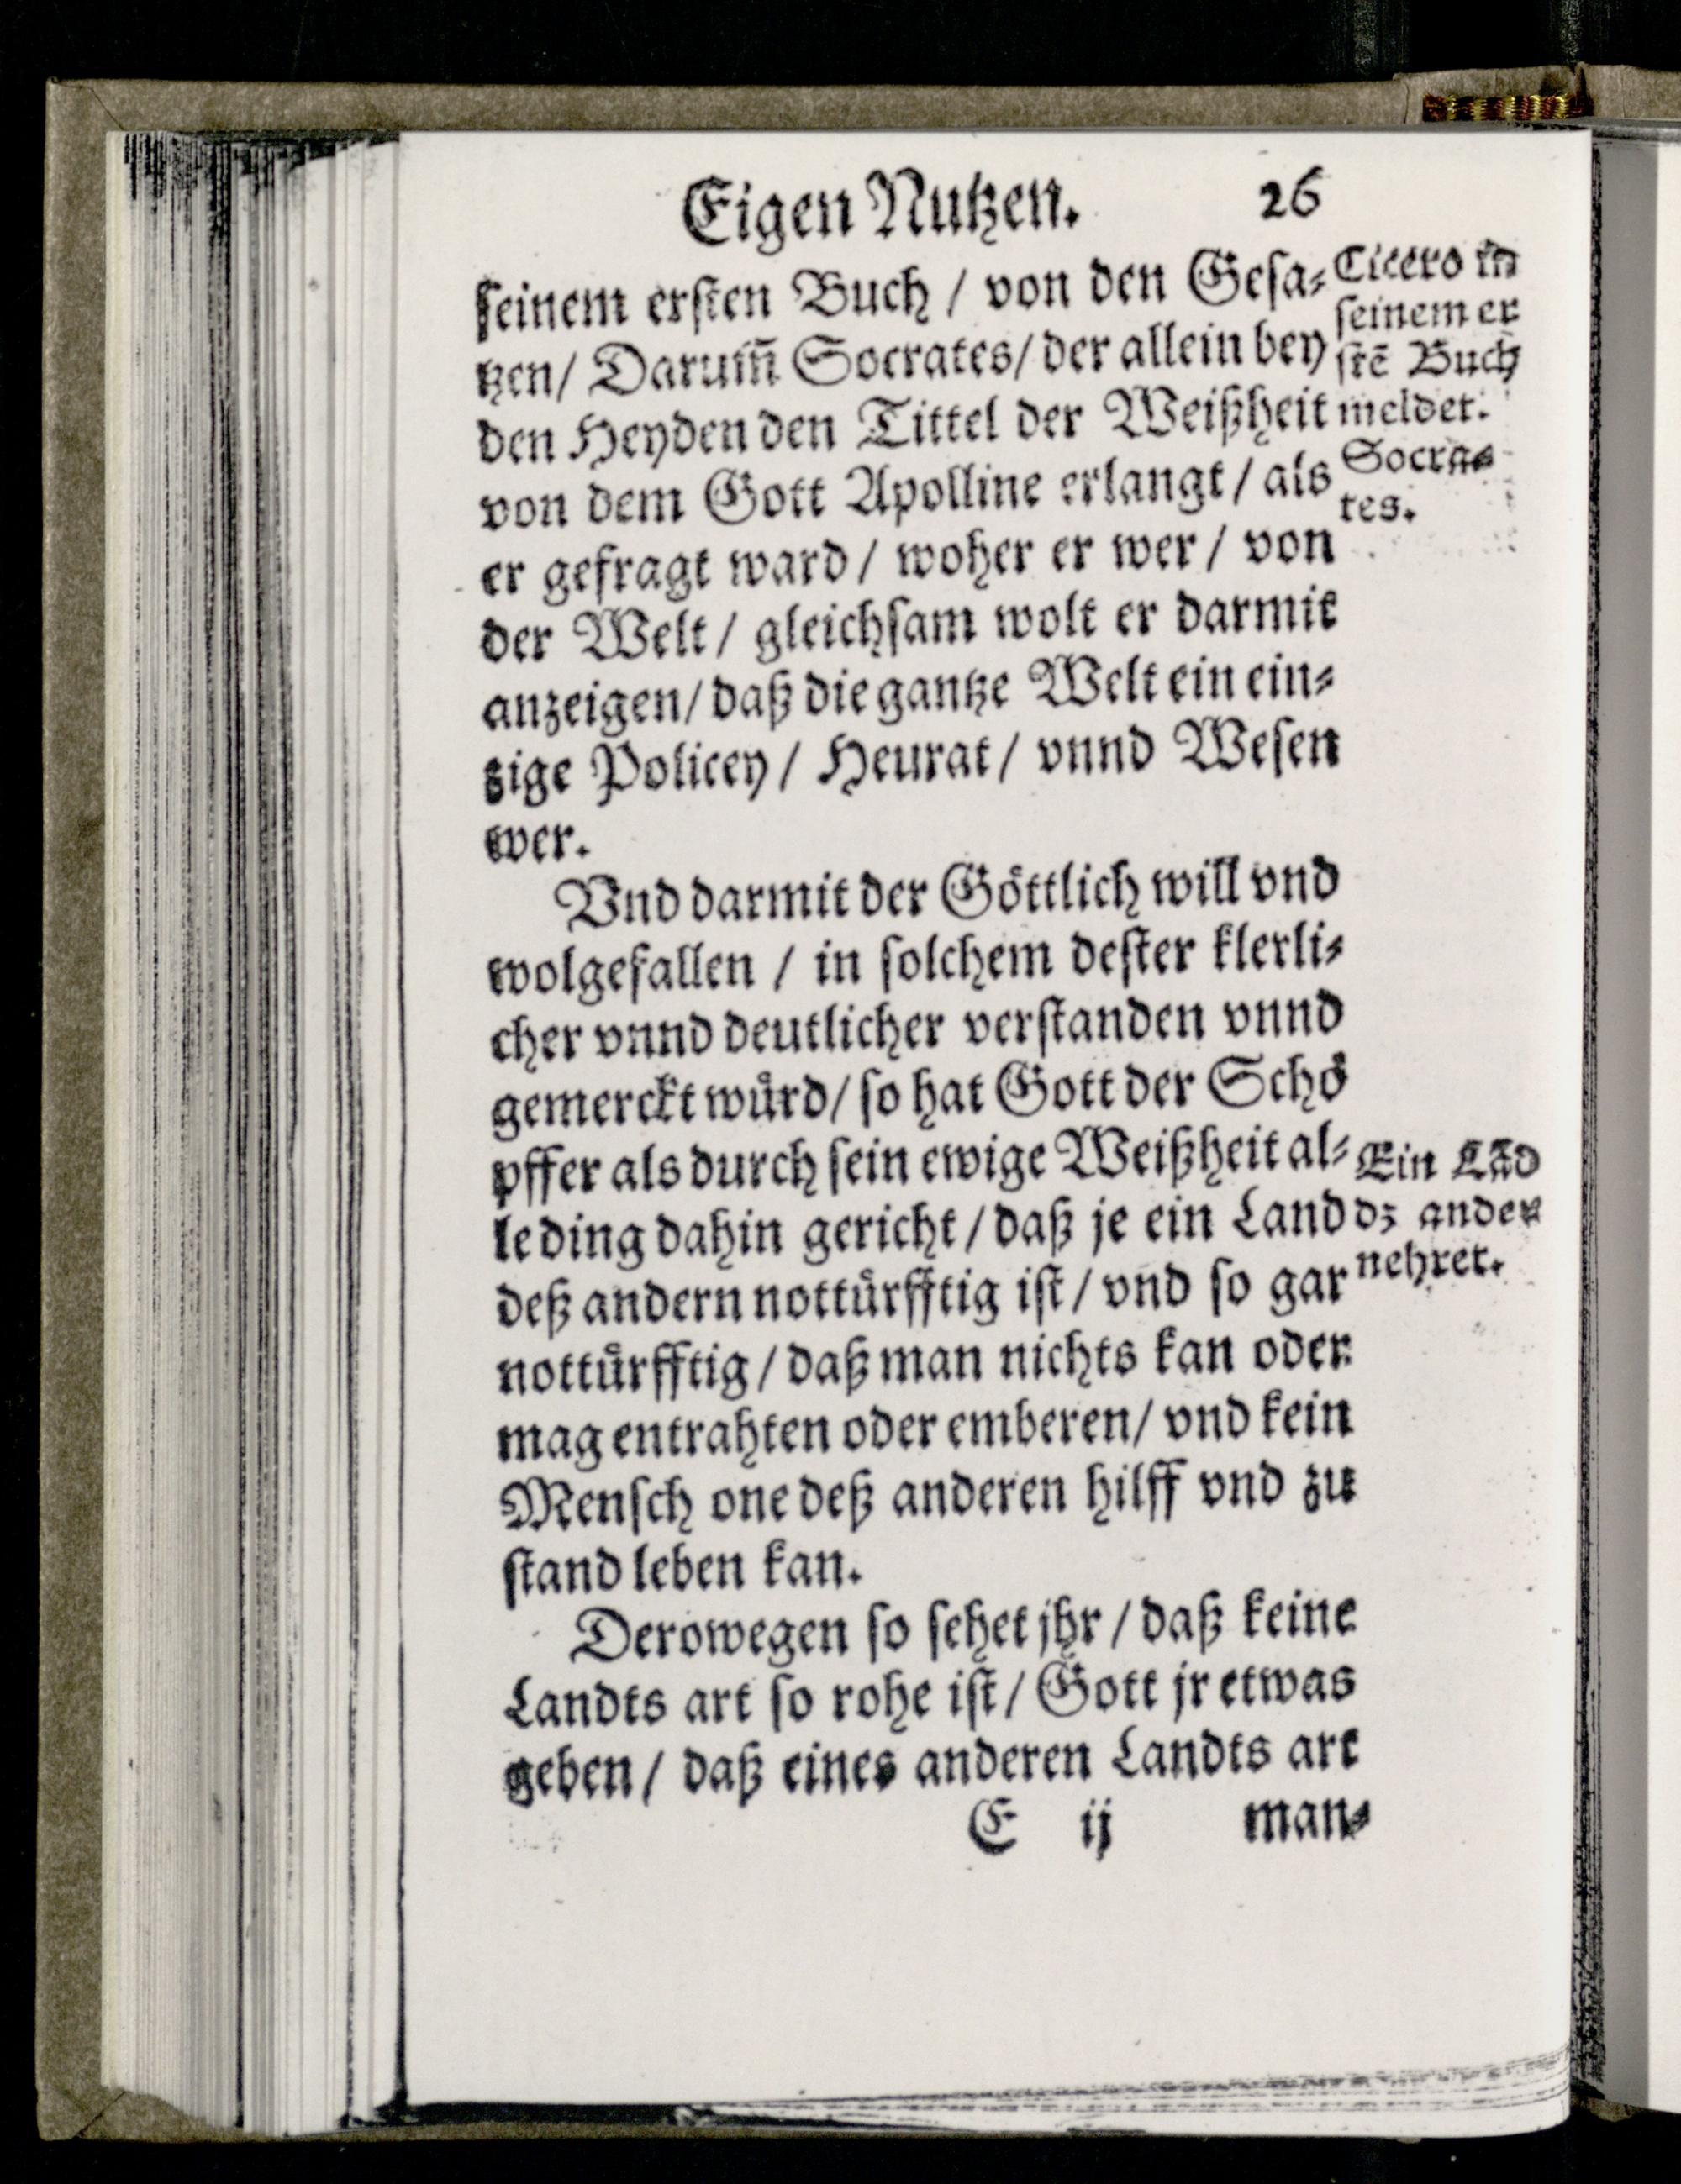 Eigen Nutzen. 26
ſeinem erſten Buch / von den Geſa⸗
tzen/ Darum̃ Socrates/ der allein bey
den Heyden den Tittel der Weißheit
von dem Gott Apolline erlangt / als
er gefragt ward / woher er wer / von
der Welt / gleichſam wolt er darmit
anzeigen/ daß die gantze Welt ein ein⸗
zige Policey / Heurat / vnnd Weſen
wer.
Vnd darmit der Goͤttlich will vnd
wolgefallen / in ſolchem deſter klerli⸗
cher vnnd deutlicher verſtanden vnnd
gemerckt wuͤrd/ ſo hat Gott der Schoͤ
pffer als durch ſein ewige Weißheit al⸗
le ding dahin gericht / daß je ein Land
deß andern nottuͤrfftig iſt / vnd ſo gar
nottuͤrfftig / daß man nichts kan oder
mag entrahten oder emberen/ vnd kein
Menſch one deß anderen hilff vnd zu
ſtand leben kan.
Derowegen ſo ſehet jhr / daß keine
Landts art ſo rohe iſt / Gott jr etwas
geben / daß eines anderen Landts art
E ij man⸗
Cicero in
ſeinem er
ſtē Buch
meldet.
Socra⸗
tes.
Ein Lãd
dz ander
nehret.